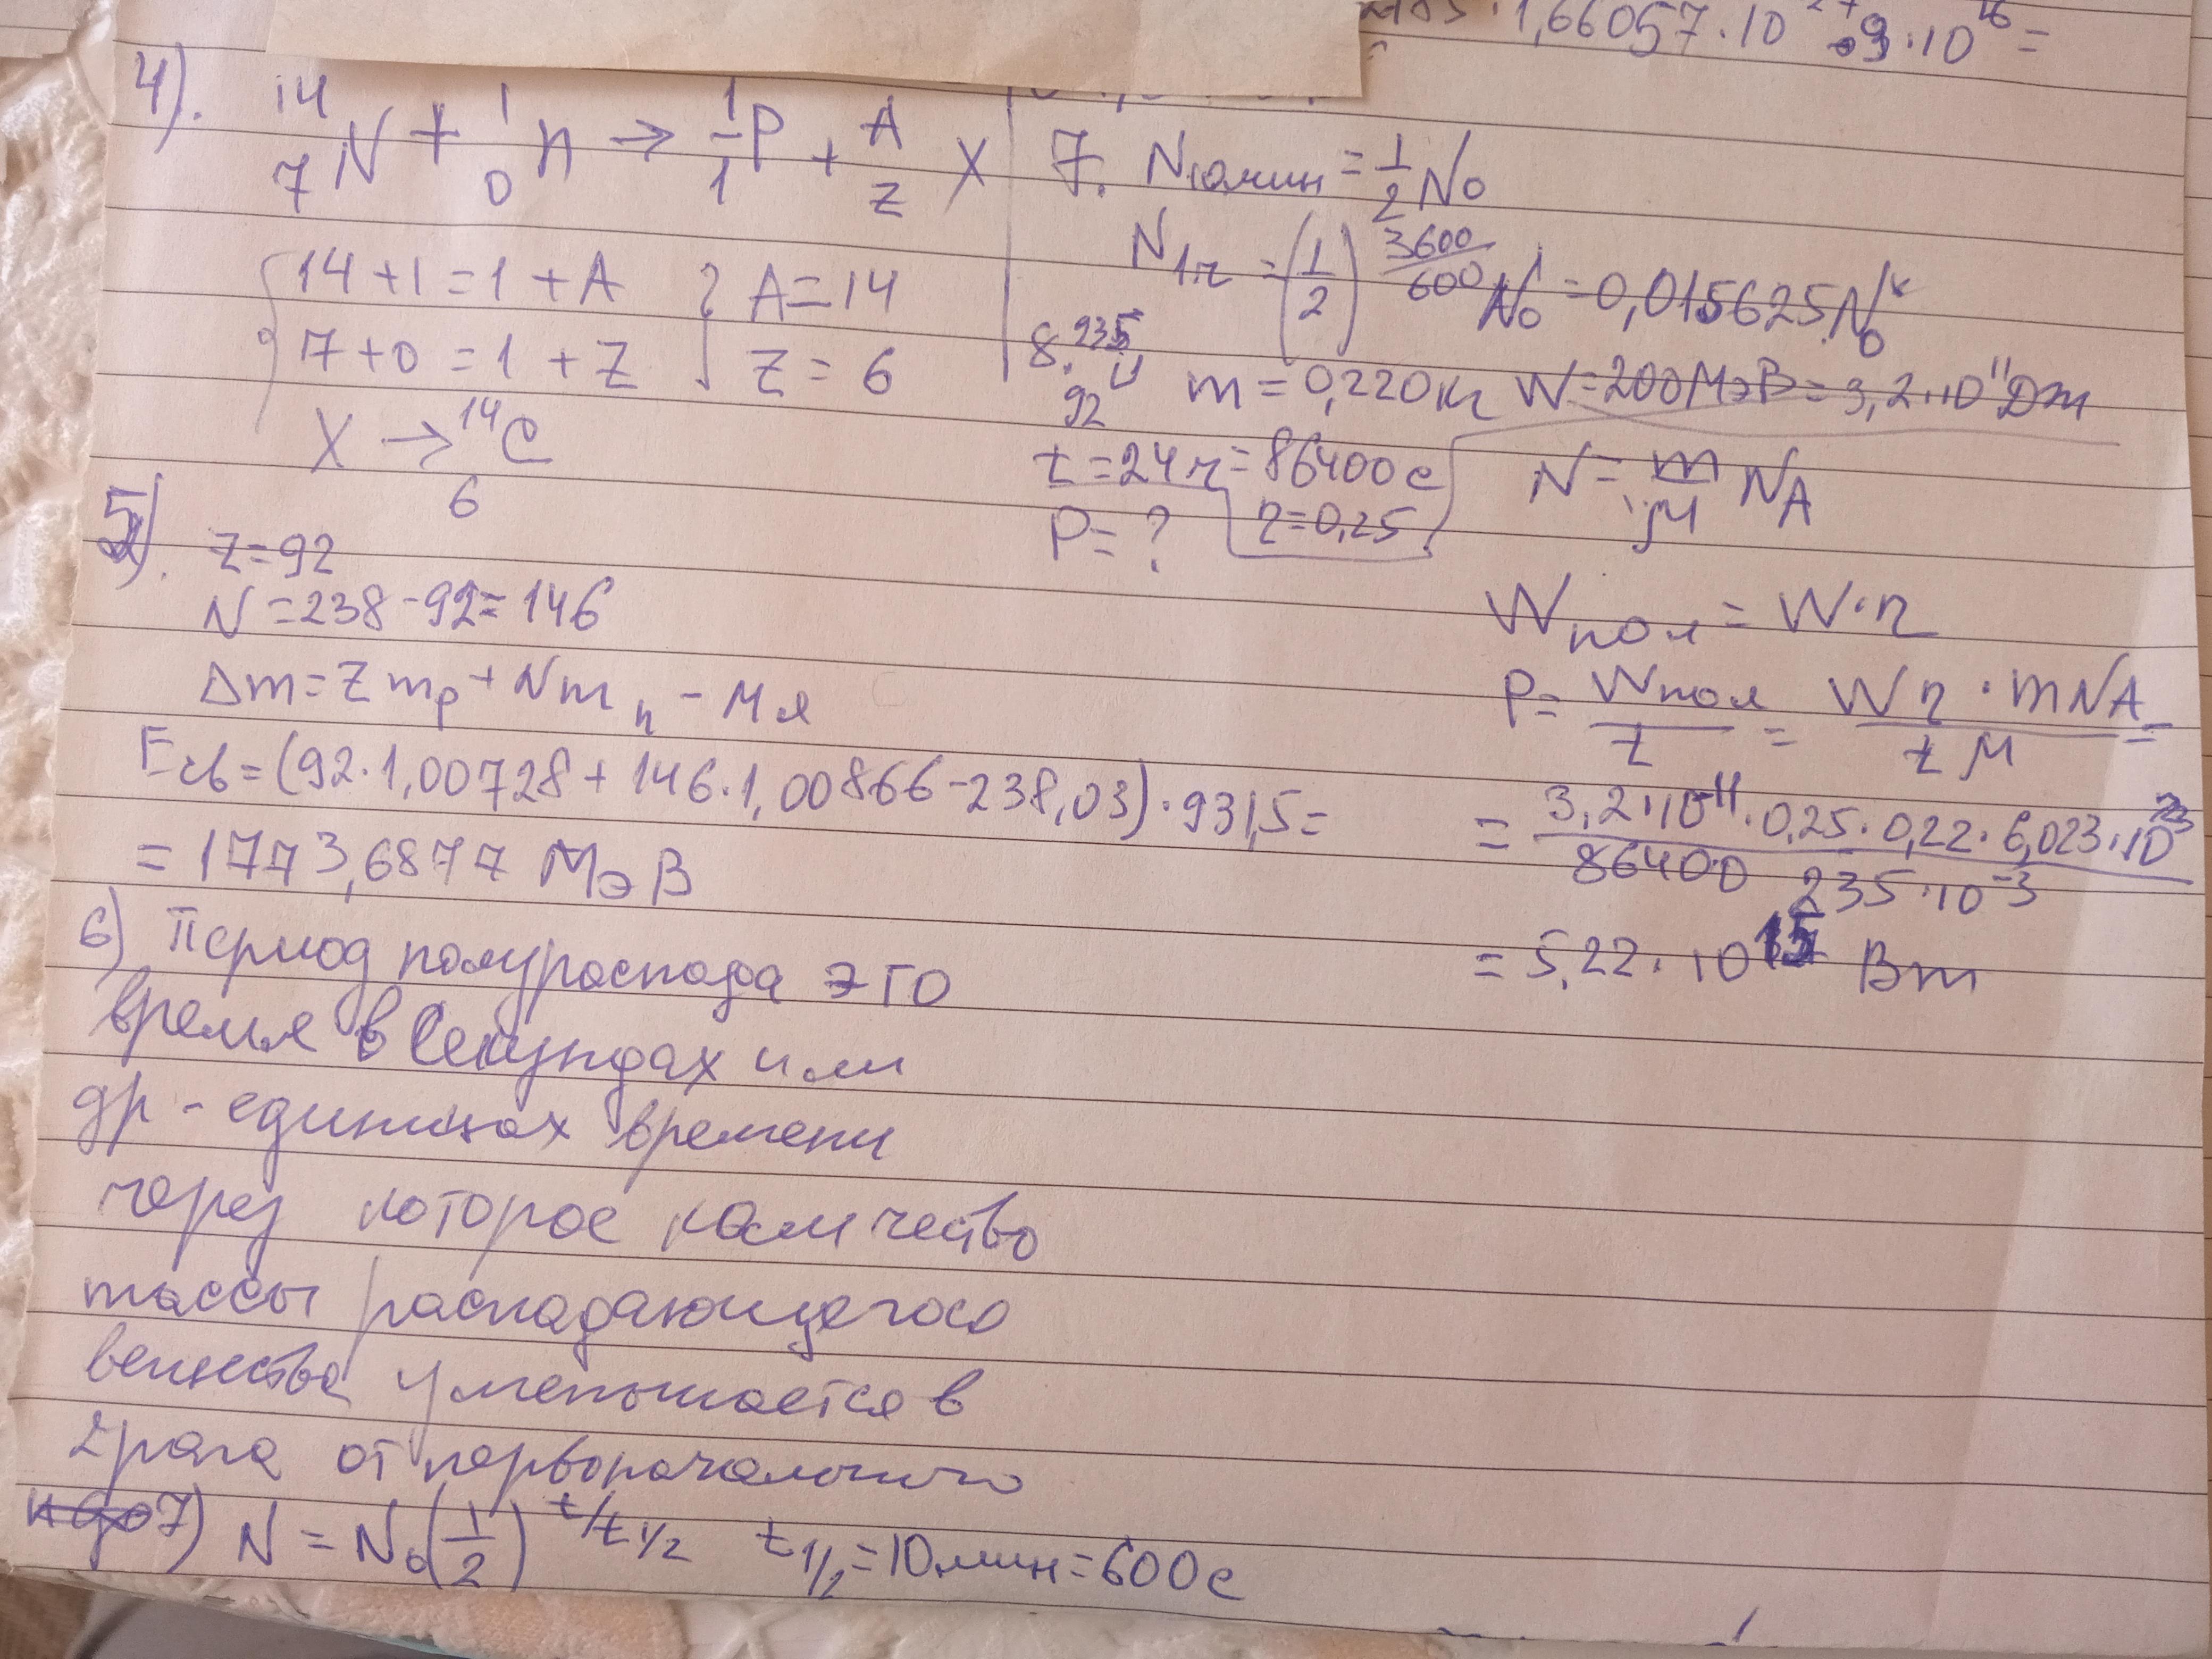 1,66057·10 9·10¹⁶=
4). ¹⁴₇N + ¹₀n → ¹₁P + ᴬ_Z X
14+1=1+A } A=14
7+0=1+Z } Z=6
X → ¹⁴₆C
5). Z=92
N=238-92=146
Δm=Zmp+Nmn-Mя
Eсв=(92·1,00728+146·1,00866-238,03)·931,5=
=1773,6877 МэВ
6) Период полураспада это
время в секундах или
др-единицах времени
через которое количество
массы распадающегося
вещества уменьшается в
2 раза от первоначального
7) N=N₀(1/2)^t/t1/2 t1/2=10мин=600с
7. N10мин=1/2 N₀
N1ч=(1/2)^3600/600 N₀=0,015625N₀
8. ²³⁵₉₂U m=0,220кг W=200МэВ=3,2·10¹¹Дж
t=24ч=86400с N=m/M NA
P=? η=0,25
Wпол=W·η
P=Wпол/t=Wη·mNA/tM=
=3,2·10⁻¹¹·0,25·0,22·6,023·10²³/86400 235·10⁻³
=5,22·10¹⁵ Вт